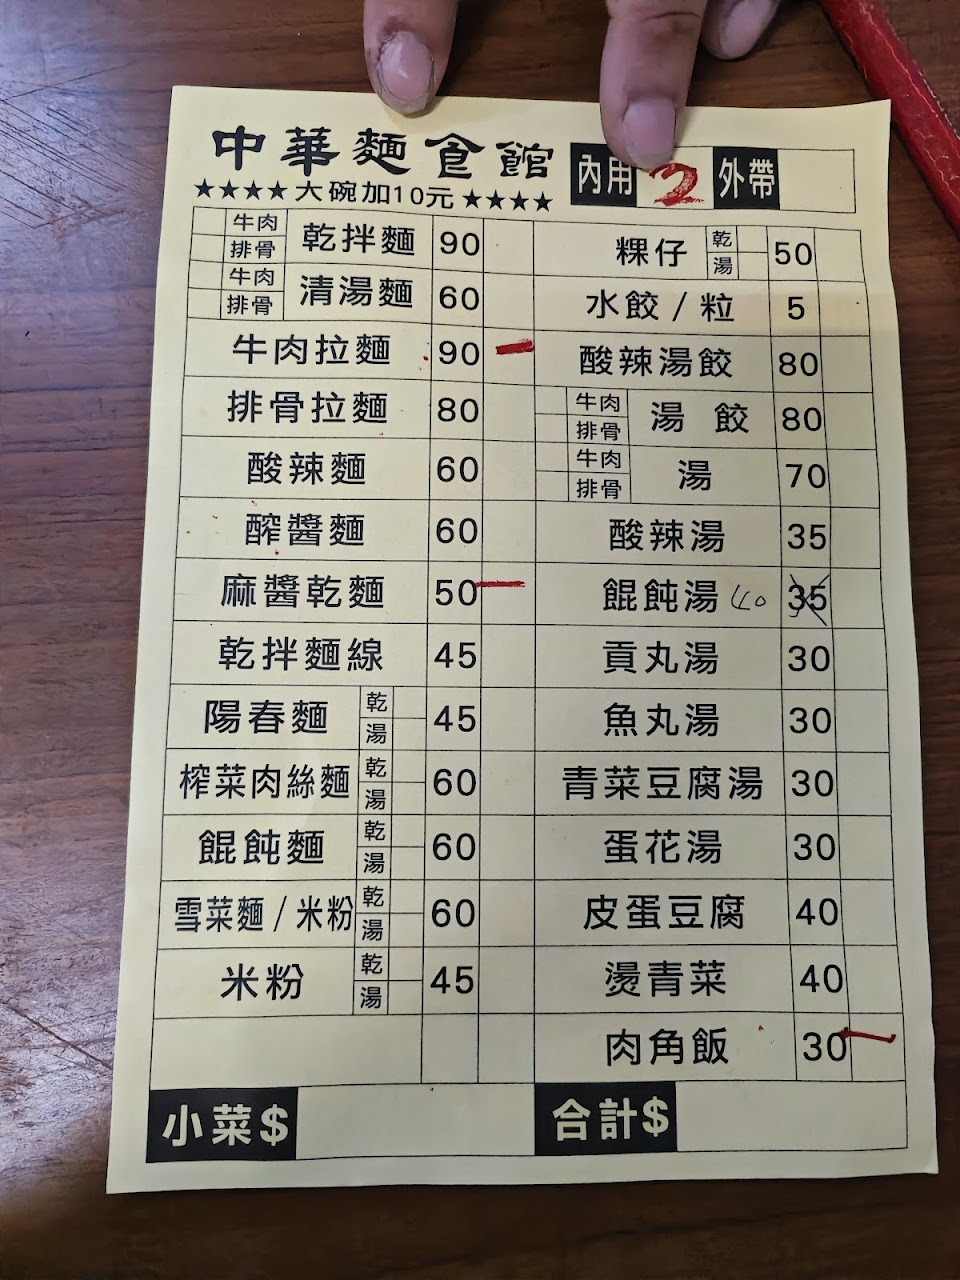 中華麵食館 內用 2 外帶
★★★★大碗加10元★★★★
牛肉 排骨 乾拌麵 90
牛肉 排骨 清湯麵 60
牛肉拉麵 90 一
排骨拉麵 80
酸辣麵 60
醡醬麵 60
麻醬乾麵 50 一
乾拌麵線 45
陽春麵 乾 湯 45
榨菜肉絲麵 乾 湯 60
餛飩麵 乾 湯 60
雪菜麵/米粉 乾 湯 60
米粉 乾 湯 45
小菜$
粿仔 乾 湯 50
水餃/粒 5
酸辣湯餃 80
牛肉 排骨 湯餃 80
牛肉 排骨 湯 70
酸辣湯 35
餛飩湯 40 35
貢丸湯 30
魚丸湯 30
青菜豆腐湯 30
蛋花湯 30
皮蛋豆腐 40
燙青菜 40
肉角飯 30 一
合計$